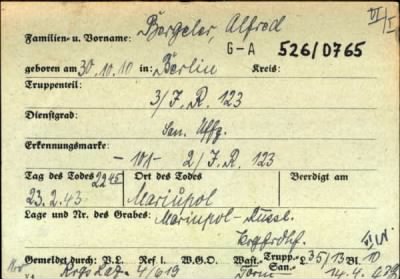 Familien- u. Vorname: Borgeler, Alfred VI/I
G-A 526/0765
geboren am 30.10.10 in: Berlin Kreis:
Truppenteil:
3/J.R. 123
Dienstgrad:
San. Uffz.
Erkennungsmarke:
-101- 2/J.R. 123
Tag des Todes 2245 Ort des Todes Beerdigt am
23.2.43 Mariupol
Lage und Nr. des Grabes: Mariupol-Russl.
Gemeldet durch: V.L. Ref. L. W.G.O. Wast.- Trupp.- San.- L 35/13 Bl. 10
4/619 14.4.